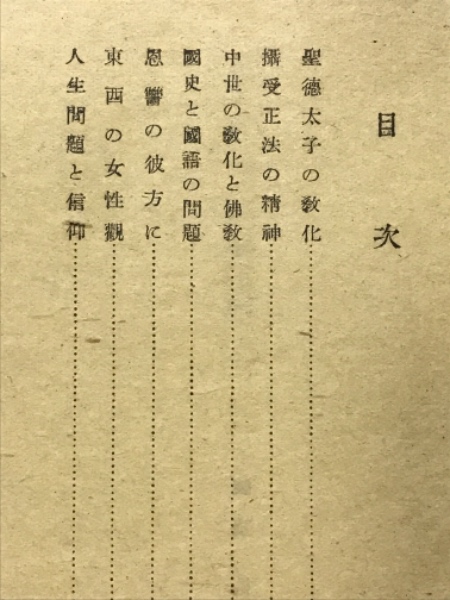 目次
聖德太子の敎化
攝受正法の精神
中世の敎化と佛敎
國史と國語の問題
恩讐の彼方に
東西の女性觀
人生問題と信仰